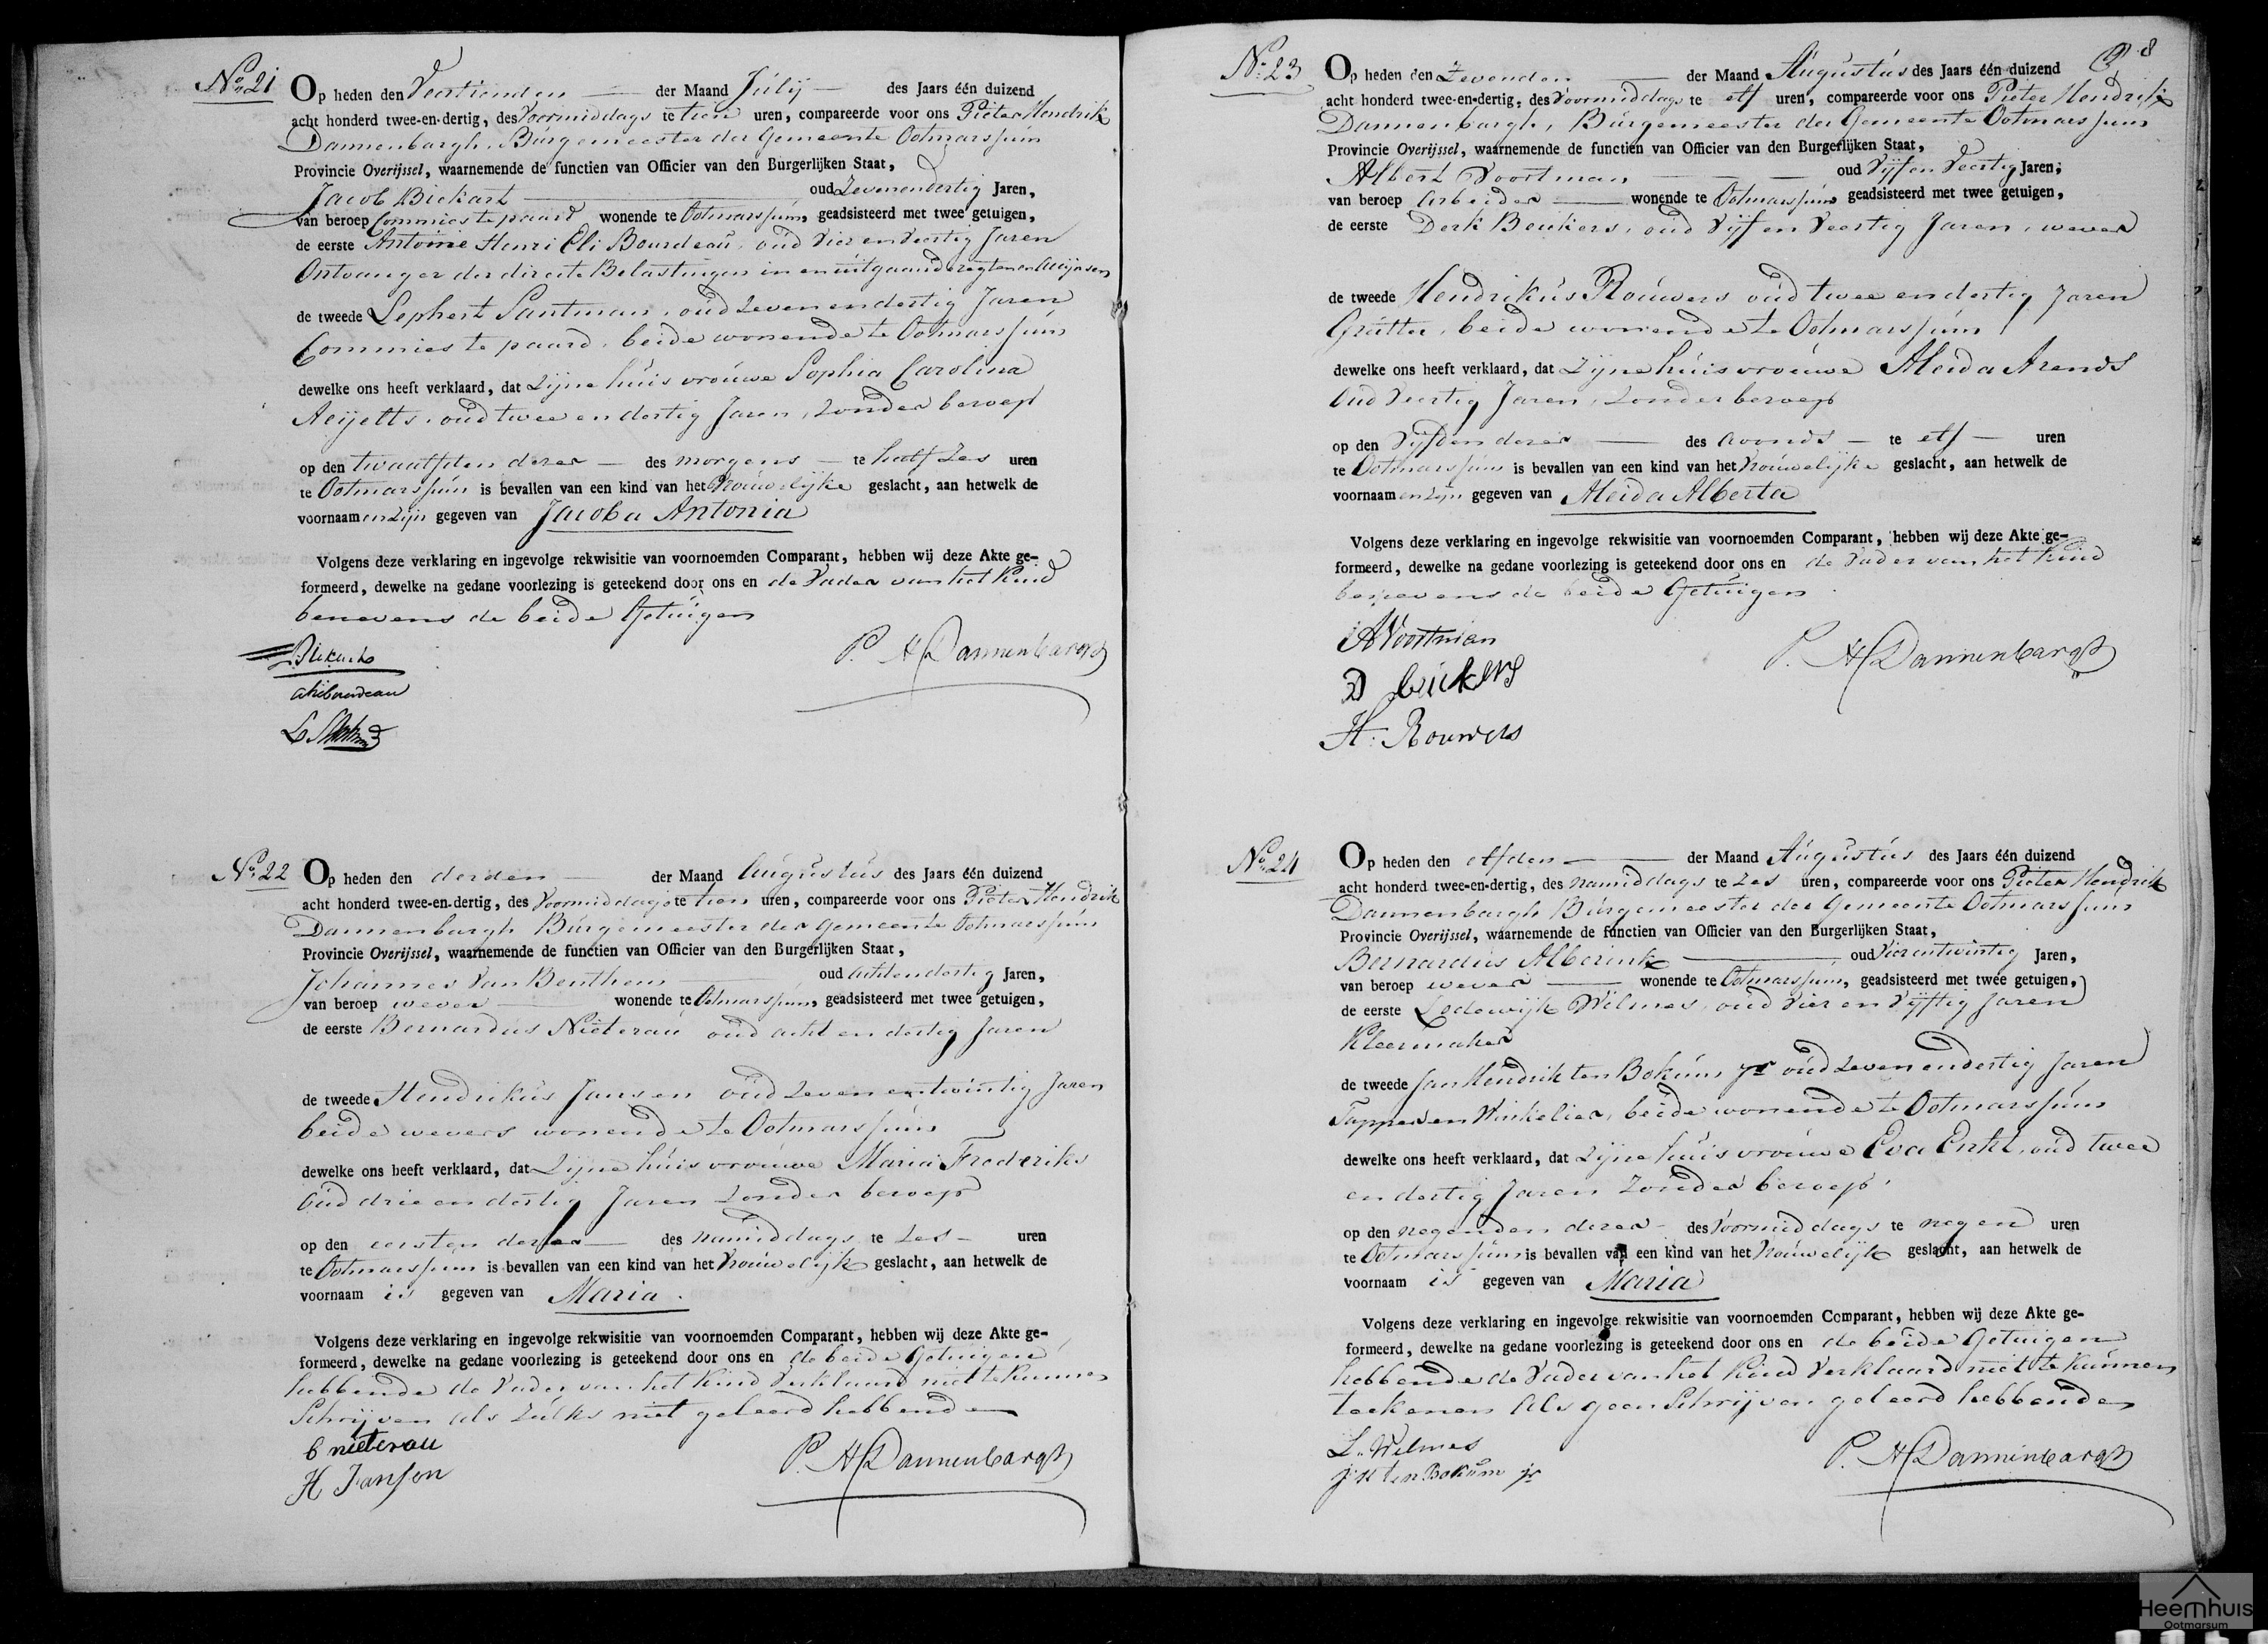 No. 21 Op heden den Veertienden der Maand Julij des Jaars één duizend
acht honderd twee-en-dertig, des Voormiddags te tien uren, compareerde voor ons Pieter Hendrik
Dannenbargh, Burgemeester der Gemeente Ootmarssum
Provincie Overijssel, waarnemende de functien van Officier van den Burgerlijken Staat,
Jacob Bickart oud Zevenendertig Jaren,
van beroep Commies te paard wonende te Ootmarssum, geadsisteerd met twee getuigen,
de eerste Antoine Henri Eli Bourdeau, oud Vier en Veertig Jaren
Ontvanger der directe Belastingen in en uitgaande regten en Accijnsen
de tweede Lephert Santman, oud Zevenendertig Jaren
Commies te paard, beide wonende te Ootmarssum
dewelke ons heeft verklaard, dat Zijne huisvrouwe Sophia Carolina
oud twee en dertig Jaren, Zonder beroep
op den twaalfden dezer des morgens te half Zes uren
te Ootmarssum is bevallen van een kind van het Vrouwelijke geslacht, aan hetwelk de
voornaam en Zijn gegeven van Jacoba Antonia
Volgens deze verklaring en ingevolge rekwisitie van voornoemden Comparant, hebben wij deze Akte ge-
formeerd, dewelke na gedane voorlezing is geteekend door ons en de Vader van het Kind
benevens de beide Getuigen
Bickart P. H Dannenbargh
ahebourdeau
No. 22 Op heden den derden der Maand Augustus des Jaars één duizend
acht honderd twee-en-dertig, des Voormiddags te tien uren, compareerde voor ons Pieter Hendrik
Dannenbargh Burgemeester der Gemeente Ootmarssum
Provincie Overijssel, waarnemende de functien van Officier van den Burgerlijken Staat,
Johannes Van Benthem oud Achtendertig Jaren,
van beroep wever wonende te Ootmarssum, geadsisteerd met twee getuigen,
de eerste Bernardus Niëterau oud acht en dertig Jaren
de tweede Hendrikus Jansen oud Zevenentwintig Jaren
beide wevers wonende te Ootmarssum
dewelke ons heeft verklaard, dat Zijne huisvrouwe Maria Frederiks
Oud drie en dertig Jaren Zonder beroep
op den eersten dezer des namiddags te Zes uren
te Ootmarssum is bevallen van een kind van het Vrouwelijk geslacht, aan hetwelk de
voornaam is gegeven van Maria.
Volgens deze verklaring en ingevolge rekwisitie van voornoemden Comparant, hebben wij deze Akte ge-
formeerd, dewelke na gedane voorlezing is geteekend door ons en de beide Getuigen
hebbende de Vader van het Kind Verklaard niet te kunnen
Schrijven als Zulks niet geleerd hebbende
B nieterau P. H Dannenbargh
H Jansen
8
No. 23 Op heden den Zevenden der Maand Augustus des Jaars één duizend
acht honderd twee-en-dertig, des Voormiddags te elf uren, compareerde voor ons Pieter Hendrik
Dannenbargh, Burgemeester der Gemeente Ootmarssum
Provincie Overijssel, waarnemende de functien van Officier van den Burgerlijken Staat,
Albert Voortman oud Vijf en Veertig Jaren,
van beroep Arbeider wonende te Ootmarssum geadsisteerd met twee getuigen,
de eerste Derk Beukers, oud Vijf en Veertig Jaren, wever
de tweede Hendrikus Rouwers oud twee en dertig Jaren
Grutter, beide wonende te Ootmarssum
dewelke ons heeft verklaard, dat Zijne huisvrouwe Aleida Arends
Oud Veertig Jaren, Zonder beroep
op den Vijfden dezer des Avonds te elf uren
te Ootmarssum is bevallen van een kind van het Vrouwelijke geslacht, aan hetwelk de
voornaam en Zijn gegeven van Aleida Alberta
Volgens deze verklaring en ingevolge rekwisitie van voornoemden Comparant, hebben wij deze Akte ge-
formeerd, dewelke na gedane voorlezing is geteekend door ons en de Vader van het Kind
benevens de beide Getuigen
A Voortman P. H Dannenbargh
D beukers
H. Rouwers
No. 24 Op heden den elfden der Maand Augustus des Jaars één duizend
acht honderd twee-en-dertig, des namiddags te Zes uren, compareerde voor ons Pieter Hendrik
Dannenbargh Burgemeester der Gemeente Ootmarssum
Provincie Overijssel, waarnemende de functien van Officier van den Burgerlijken Staat,
Bernardus Alberink oud Vierentwintig Jaren,
van beroep wever wonende te Ootmarssum, geadsisteerd met twee getuigen,
de eerste Lodewijk Wilmes, oud Vier en Vijftig Jaren
Kleermaker
de tweede Jan Hendrik ten Bokum jr oud Zevenendertig Jaren
Tapper en Winkelier, beide wonende te Ootmarssum
dewelke ons heeft verklaard, dat Zijne huisvrouwe Eva Enkt, oud twee
en dertig Jaren Zonder beroep
op den negenden dezer des Voormiddags te negen uren
te Ootmarssum is bevallen van een kind van het Vrouwelijk geslacht, aan hetwelk de
voornaam is gegeven van Maria
Volgens deze verklaring en ingevolge rekwisitie van voornoemden Comparant, hebben wij deze Akte ge-
formeerd, dewelke na gedane voorlezing is geteekend door ons en de beide Getuigen
hebbende de Vader van het Kind Verklaard niet te kunnen
teekenen Als geen Schrijven geleerd hebbende
L. Wilmes P. H Dannenbargh
J H ten Bokum jr
Heemhuis
Ootmarsum